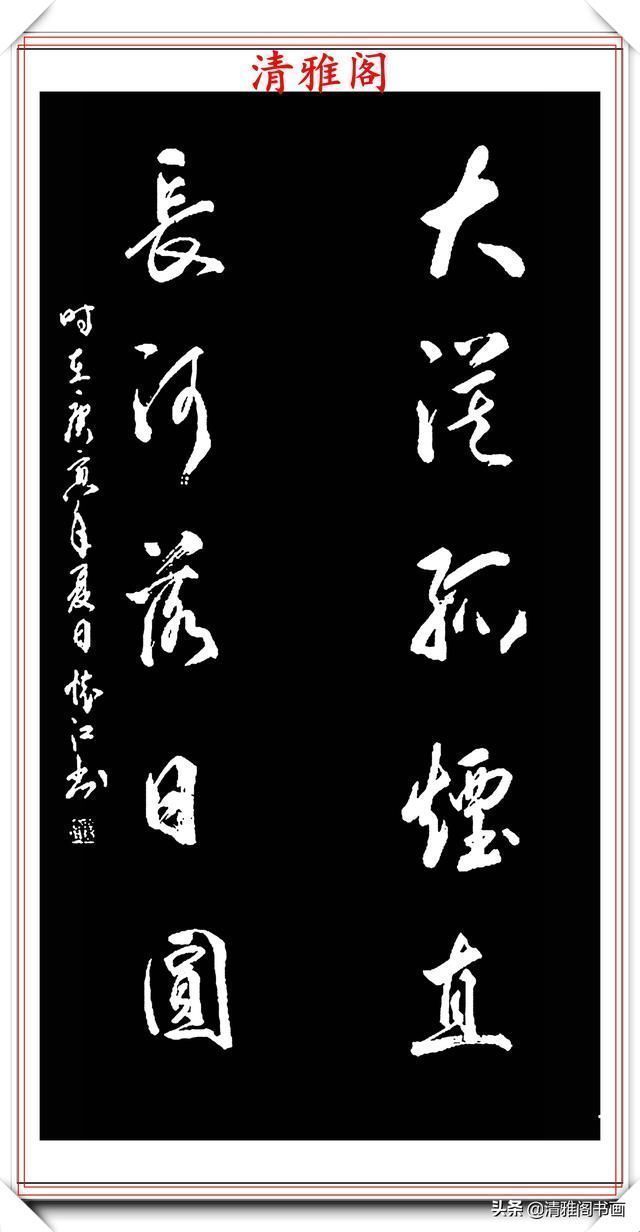 清雅阁
大漠孤煙直
長河落日圓
时在庚寅年夏日懷江书
头条@清雅阁书画